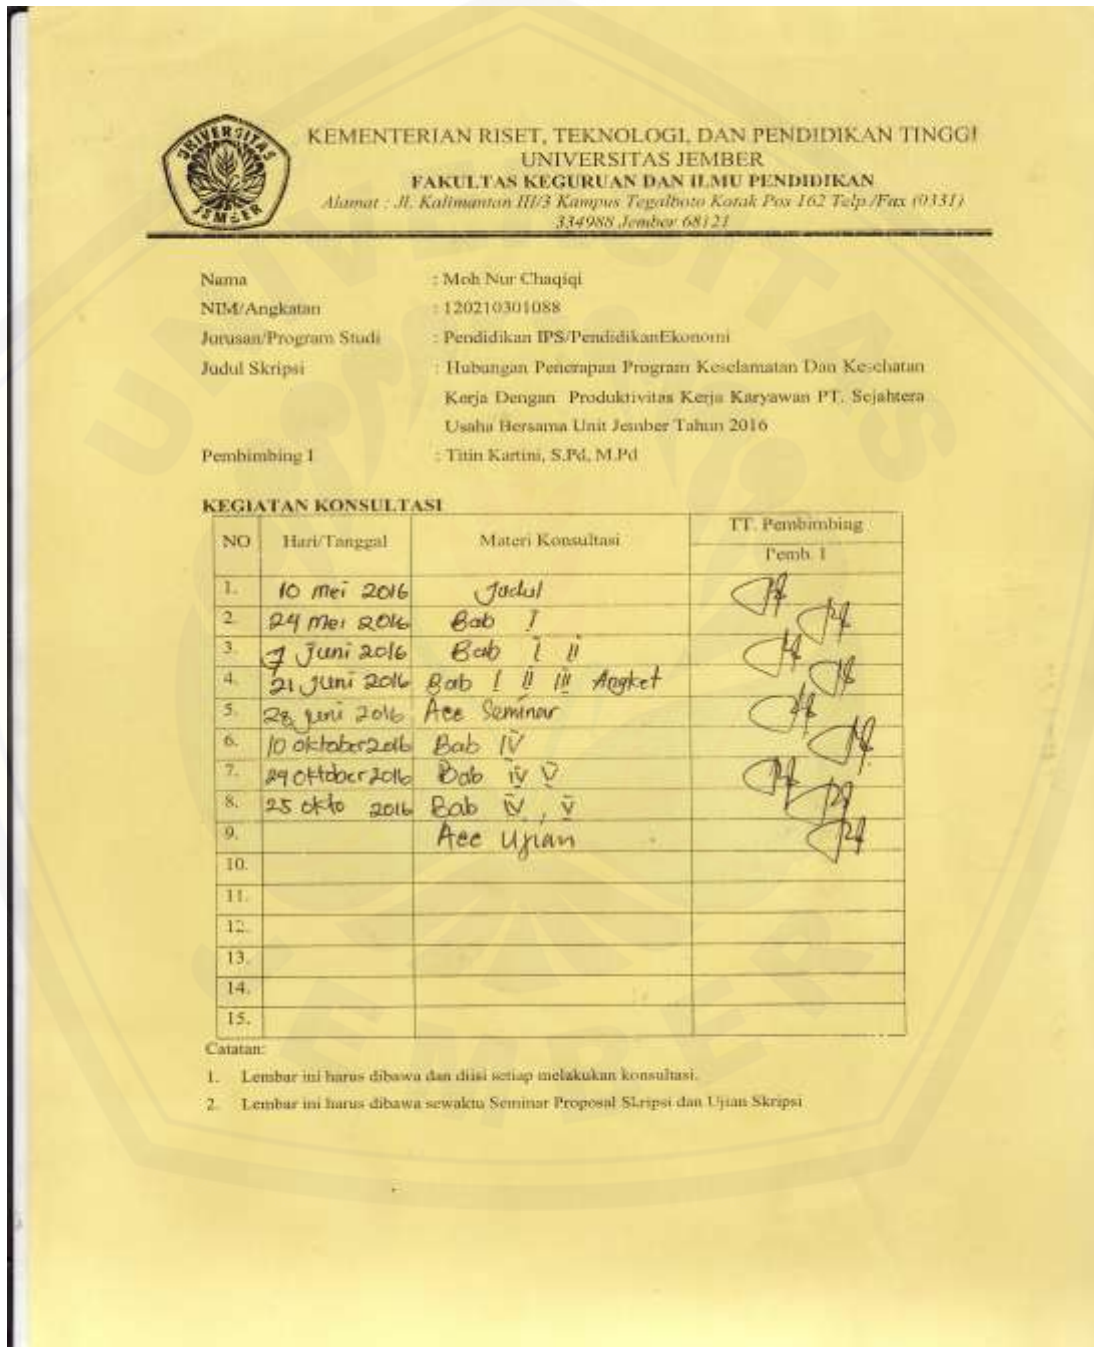 UNIVERSITAS
JEMBER
KEMENTERIAN RISET, TEKNOLOGI, DAN PENDIDIKAN TINGGI
UNIVERSITAS JEMBER
FAKULTAS KEGURUAN DAN ILMU PENDIDIKAN
Alamat : Jl. Kalimantan III/3 Kampus Tegalboto Kotak Pos 162 Telp./Fax (0331)
334988 Jember 68121
Nama : Moh Nur Chaqiqi
NIM/Angkatan : 120210301088
Jurusan/Program Studi : Pendidikan IPS/PendidikanEkonomi
Judul Skripsi : Hubungan Penerapan Program Keselamatan Dan Kesehatan
Kerja Dengan Produktivitas Kerja Karyawan PT. Sejahtera
Usaha Bersama Unit Jember Tahun 2016
Pembimbing I : Titin Kartini, S.Pd, M.Pd
KEGIATAN KONSULTASI
NO Hari/Tanggal Materi Konsultasi TT. Pembimbing
Pemb. I
1. 10 mei 2016 Judul
2. 24 Mei 2016 Bab I
3. 7 Juni 2016 Bab I II
4. 21 Juni 2016 Bab I II III Angket
5. 28 Juni 2016 Acc Seminar
6. 10 oktober 2016 Bab IV
7. 24 oktober 2016 Bab IV V
8. 25 okto 2016 Bab IV , V
9. Acc Ujian
10.
11.
12.
13.
14.
15.
Catatan:
1. Lembar ini harus dibawa dan diisi setiap melakukan konsultasi.
2. Lembar ini harus dibawa sewaktu Seminar Proposal Skripsi dan Ujian Skripsi
UNIVERSITAS JEMBER